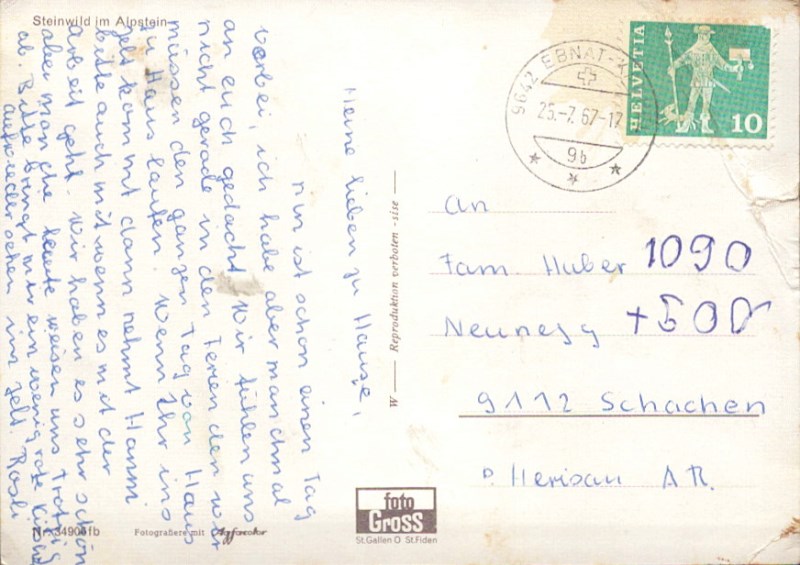 Steinwild im Alpstein
Meine lieben zu Hause,
nun ist schon einen Tag
vorbei, ich habe aber manchmal
an euch gedacht. Wir fühlen uns
nicht gerade in den Ferien den wir
müssen den ganzen Tag von Haus
zu Haus laufen. Wenn Ihr ins
Zelt kommt dann nehmt Hanni
bitte auch mit wenn es mit der
Arbeit geht. Wir haben es sehr schön
aber manche Leute weisen uns trotzig
ab. Bitte bringt mir ein wenig rote
aufwiedersehen im Zelt. Rösli
Nr. 34904fb
Fotografiere mit Agfacolor
W — Reproduktion verboten - sise —
foto
Gross
St.Gallen O St.Fiden
9642 EBNAT-K
25.-7.67-17
9b
HELVETIA
10
An
Fam. Huber 1090
Neunegg +500
9112 Schachen
b. Herisau AR.